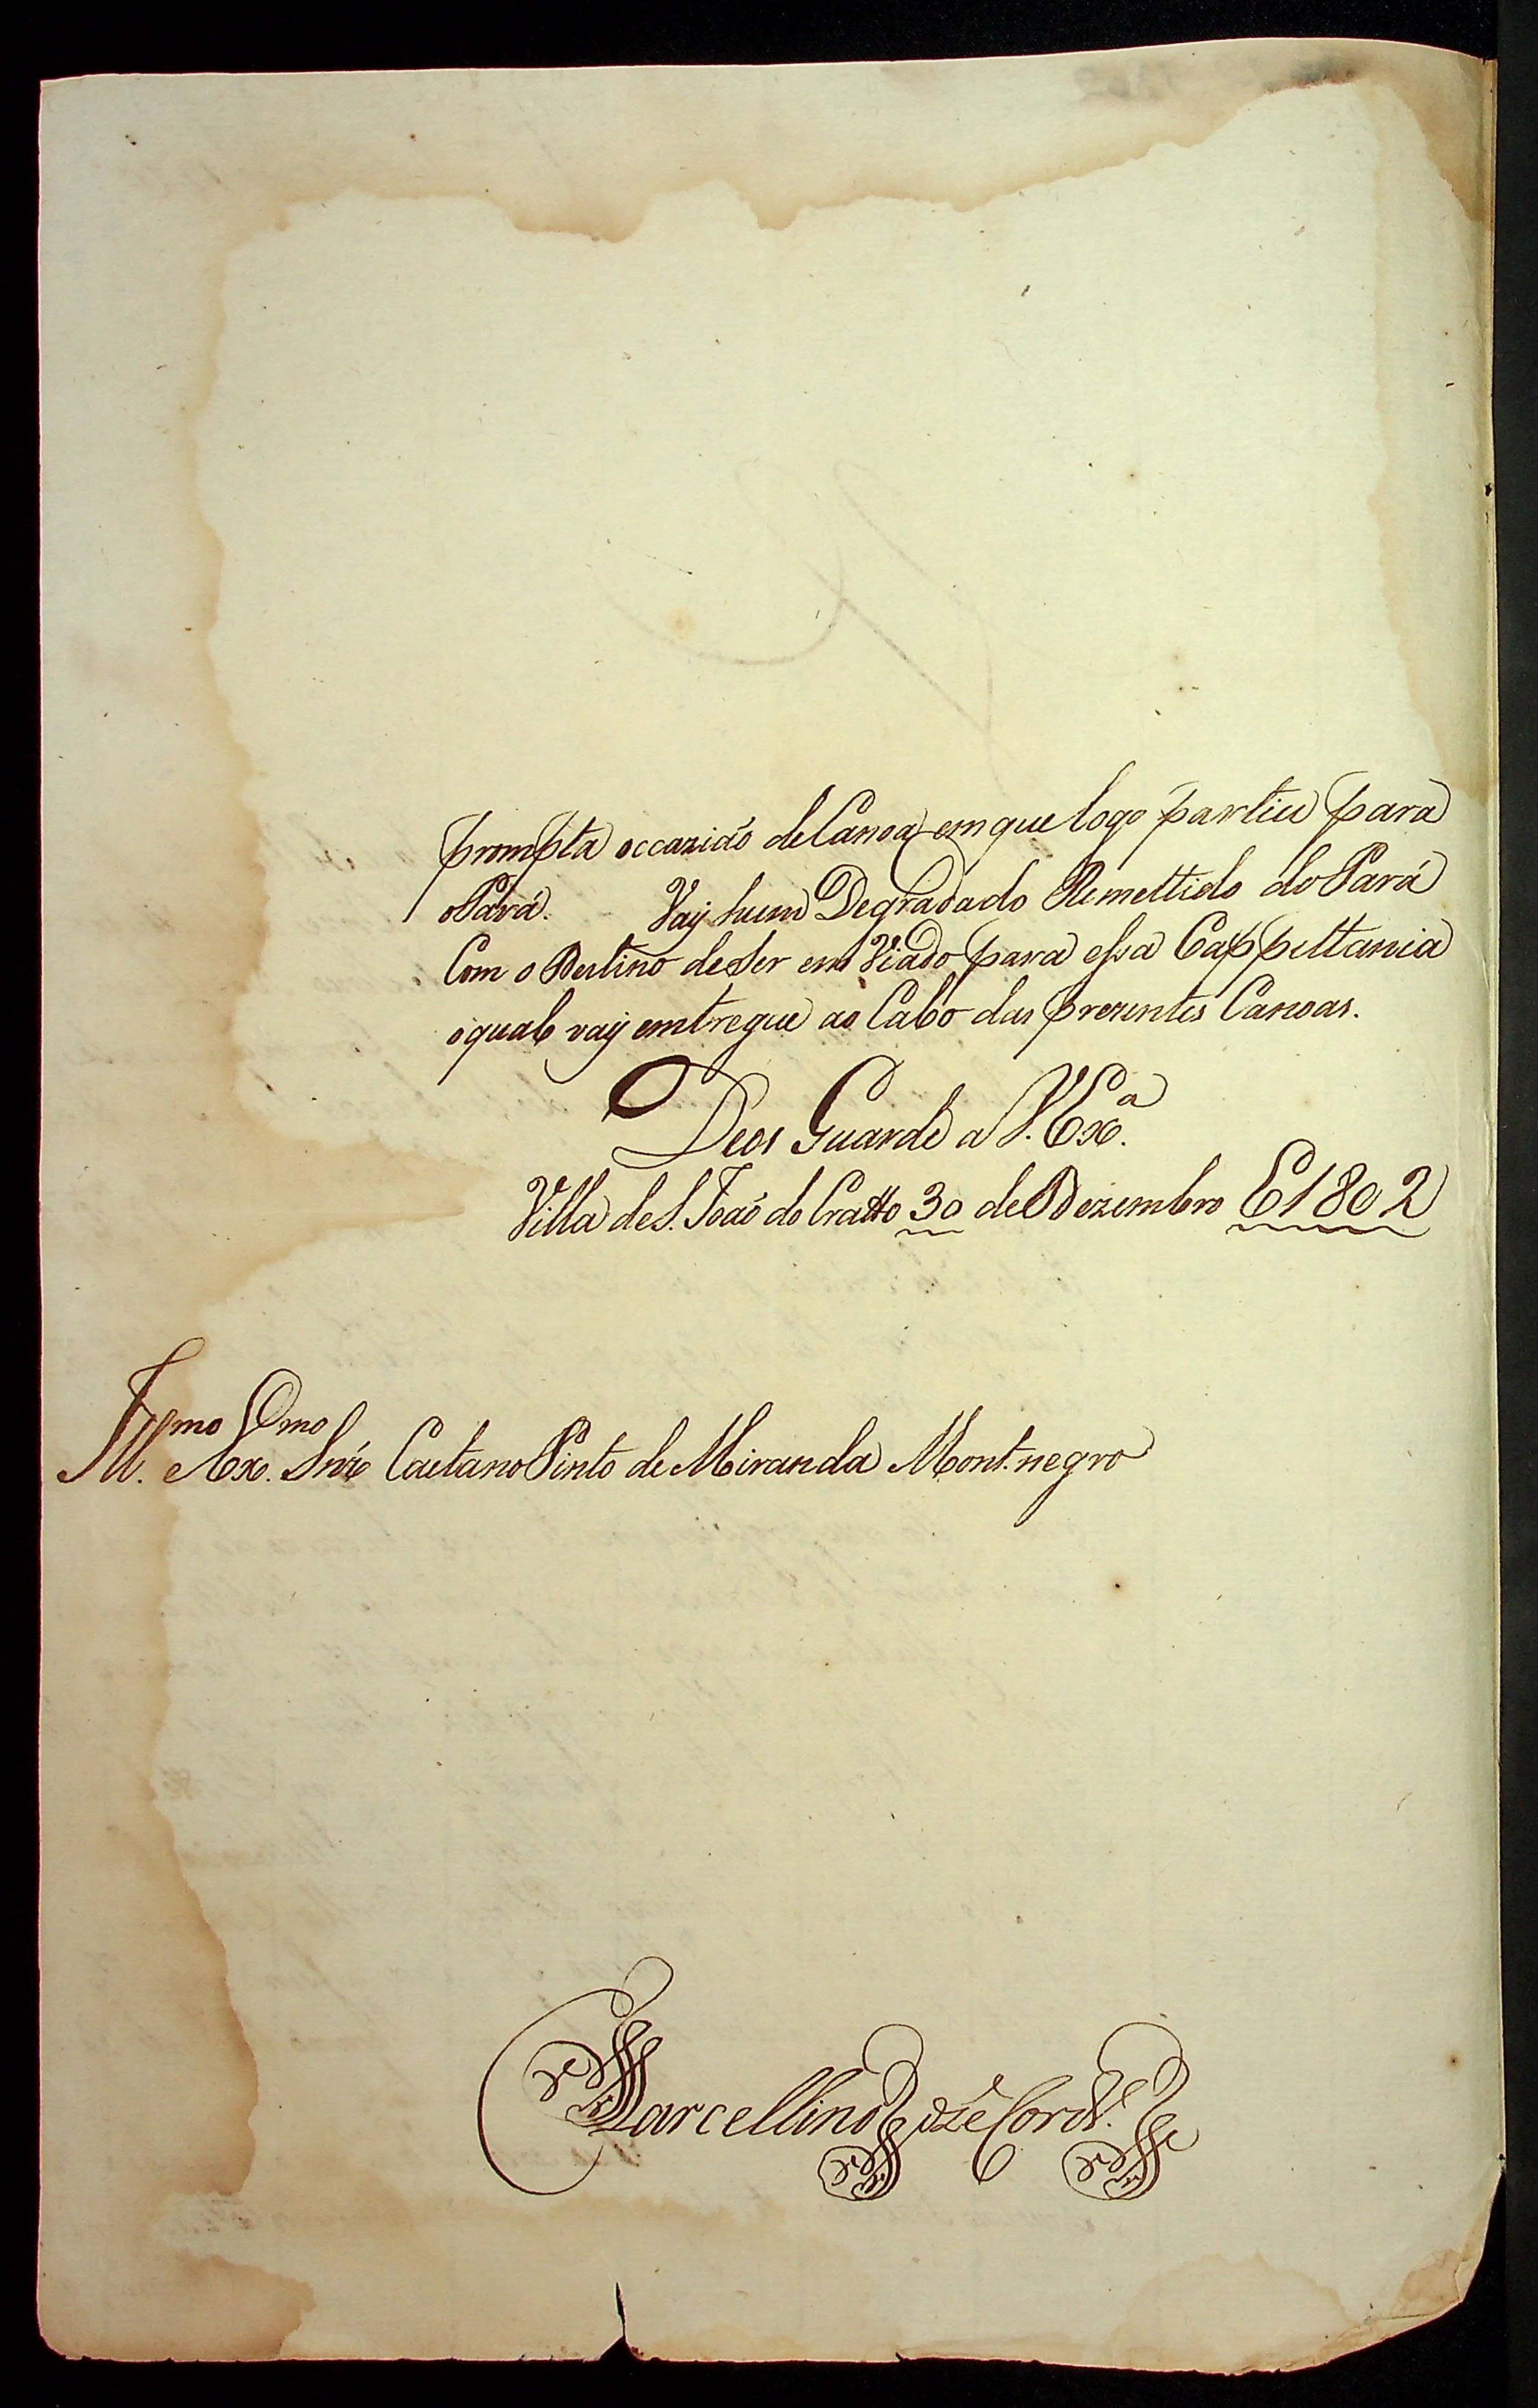 prompta occazião de Canoa em que logo partiu para
o Pará. Vay hum Degradado Remettido do Pará
Com o Destino de Ser em Viado para essa Cappittania
o qual vay emtregue ao Cabo das prezentes Canoas.
Deos Guarde a V. Exª.
Villa de S. João do Cratto 30 de Dezembro E 1802
Illmo Exmo Snr Caetano Pinto de Miranda Mont.negro
Marcellino Jozé Cordº.